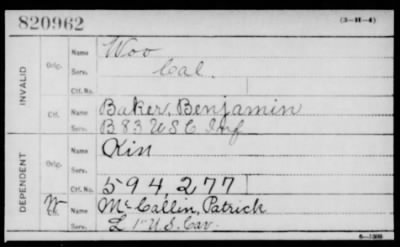 820962 (3-11-4)
INVALID
Orig. Name Woo
Serv. Cal.
Ctf. No.
Ctf. Name Baker, Benjamin
Serv. B 83 U S C Inf
DEPENDENT
Orig. Name Kin
Serv.
Ctf. No. 594,277
W Ctf. Name McCallin, Patrick
Serv. L 1" U.S. Cav.